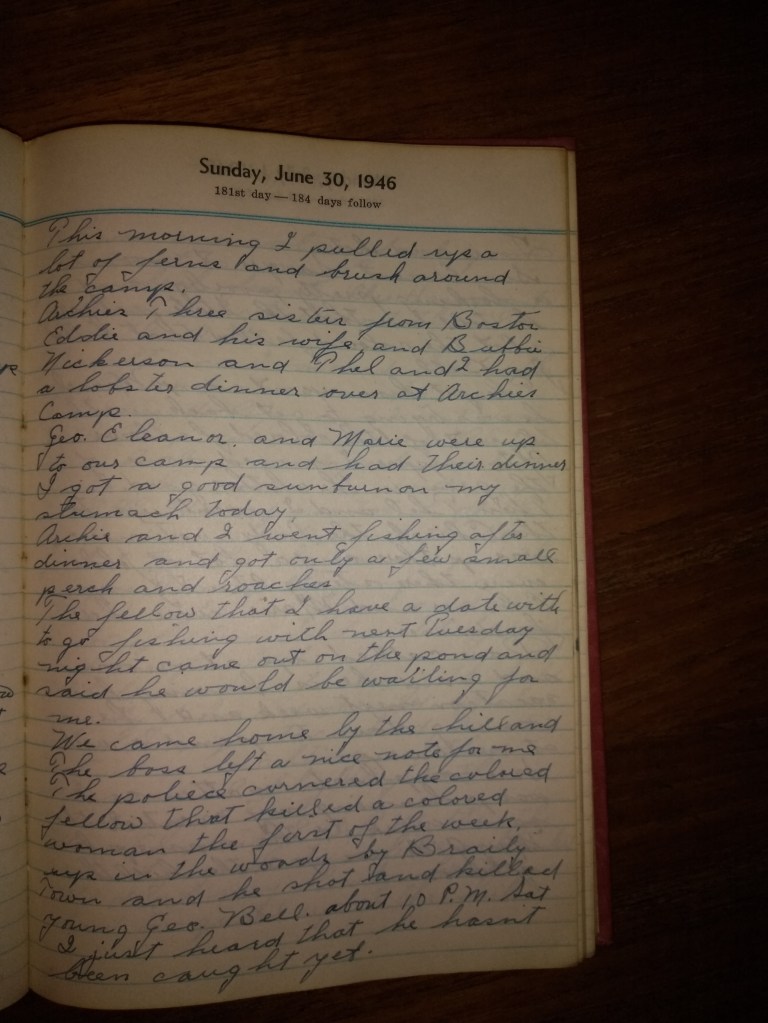 Sunday, June 30, 1946
181st day — 184 days follow
This morning I pulled up a
lot of ferns and brush around
the camp.
Archies Three sister from Boston
Eddie and his wife and Bubbie
Nickerson and Phel and I had
a lobster dinner over at Archies
Camp.
Geo. Eleanor. and Marie were up
to our camp and had their dinner
I got a good sunburn on my
stumach today
Archie and I went fishing after
dinner and got only a few small
perch and roaches
The fellow that I have a date with
to go fishing with next Tuesday
night came out on the pond and
said he would be waiting for
me.
We came home by the hill and
The boss left a nice note for me
The police cornered the colored
fellow that killed a colored
woman the first of the week.
up in the woods by Braily
Town and he shot and killed
young Geo. Bell. about 10 P.M. Sat
I just heard that he hasnt
been caught yet.